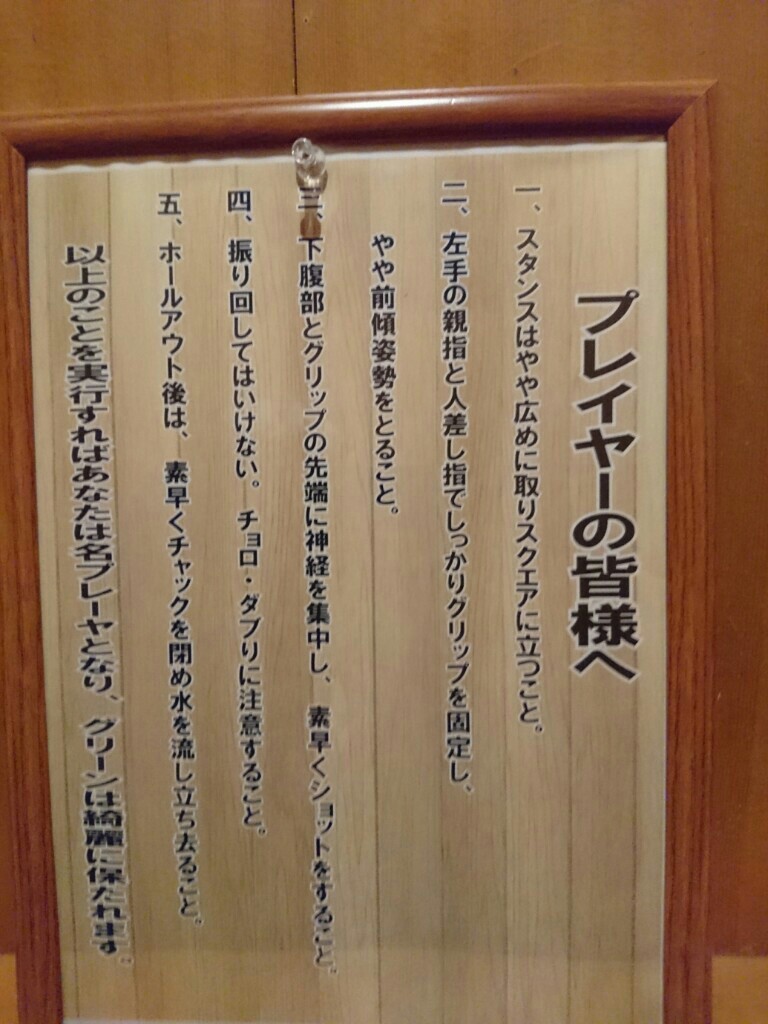 プレイヤーの皆様へ
一、スタンスはやや広めに取りスクエアに立つこと。
二、左手の親指と人差し指でしっかりグリップを固定し、
やや前傾姿勢をとること。
三、下腹部とグリップの先端に神経を集中し、素早くショットをすること。
四、振り回してはいけない。チョロ・ダブりに注意すること。
五、ホールアウト後は、素早くチャックを閉め水を流し立ち去ること。
以上のことを実行すればあなたは名プレーヤとなり、グリーンは綺麗に保たれます。